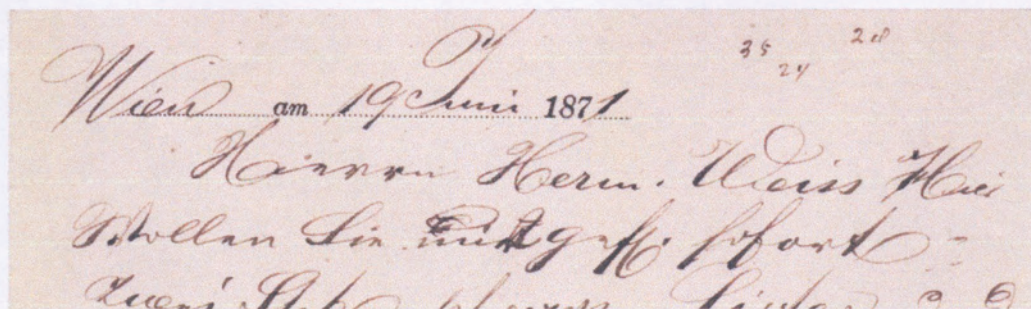 35 28
24
Wien am 19 Juni 1871
Herrn Herm. Weiss Hier
Wollen Sie mit gefl. sofort
zwei